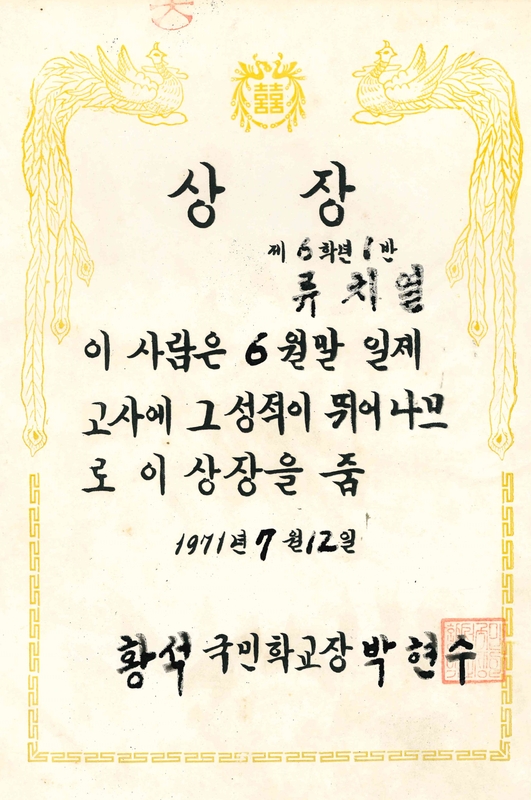 囍
상 장
제 6 학년 1 반
류 치 열
이 사람은 6 월말 일제
고사에 그 성적이 뛰어나므
로 이 상장을 줌
1971년 7 월 12 일
황석 국민학교장 박 현 수